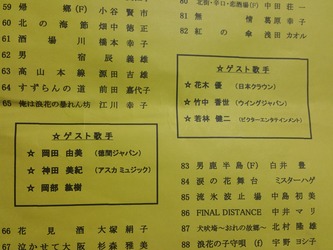 59 帰郷(F) 小谷賢市
60 北の海節 畑中徳正
61 酒場川 橋本幸子
62 男宿 辰義雄
63 高山本線 源田吉雄
64 すずらんの道 前田嘉代子
65 俺は浪花の暴れん坊 江川幸子
☆ゲスト歌手
☆ 岡田由美 (徳間ジャパン)
☆ 神田美紀 (アスカミュジック)
☆ 岡部紘樹
66 花見酒 大塚絹子
67 泣かせて大阪 杉森雅美
80 北街・辛口・恋酒場(F) 中田荘一
81 無情 葛原幸子
82 紅の傘 浅田カオル
☆ゲスト歌手
☆ 花木優 (日本クラウン)
☆ 竹中香世 (ウイングジャパン)
☆ 若林健二 (ビクターエンタテイメント)
83 男鹿半島(F) 白井豊
84 涙の花舞台 ミスターハゲ
85 流氷波止場 中島初美
86 FINAL DISTANCE 中井マリ
87 犬吠埼～おれの故郷～ 北村隆雄
88 浪花の子守唄(F) 宇野ヨシ子